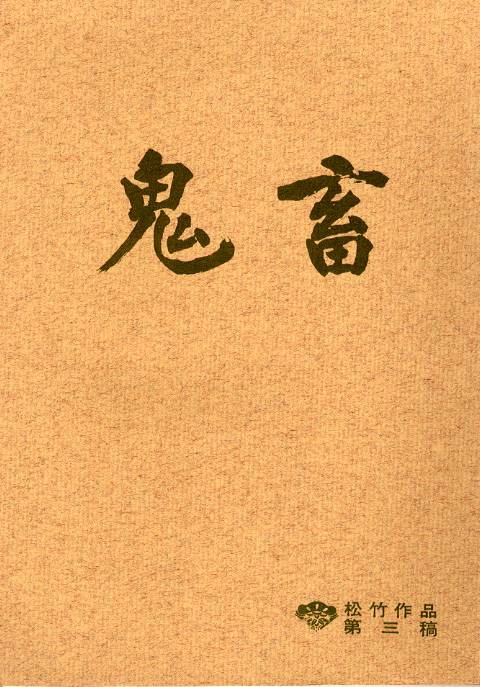 鬼畜
松竹作品
第三稿